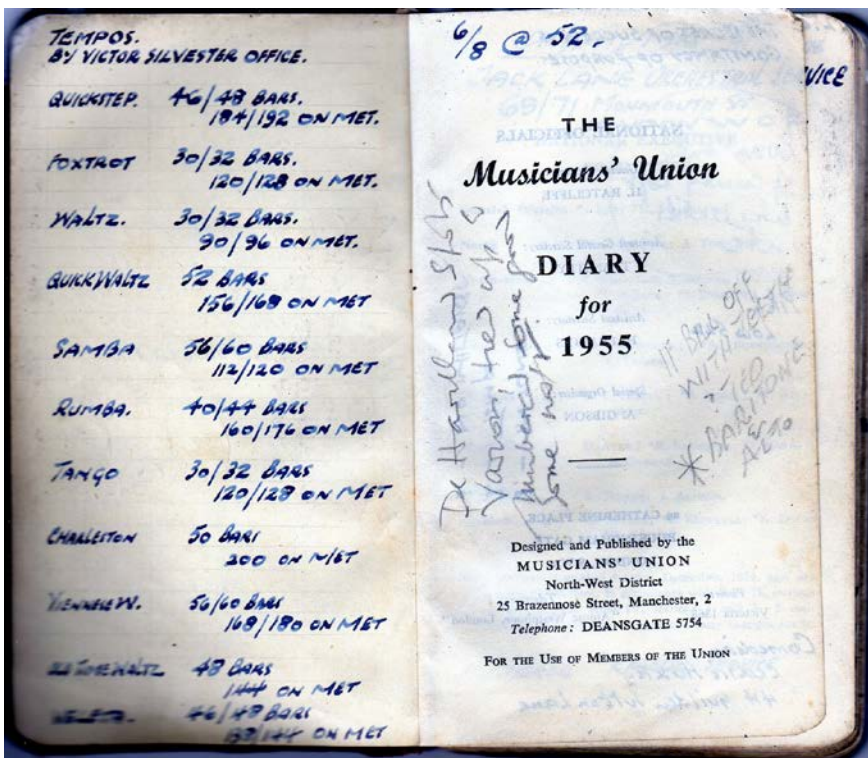 TEMPOS.
BY VICTOR SILVESTER OFFICE.
QUICKSTEP. 46/48 BARS.
184/192 ON MET.
FOXTROT 30/32 BARS.
120/128 ON MET.
WALTZ. 30/32 BARS.
90/96 ON MET.
QUICK WALTZ 52 BARS
156/168 ON MET
SAMBA 56/60 BARS
112/120 ON MET
RUMBA. 40/44 BARS
160/176 ON MET
TANGO 30/32 BARS
120/128 ON MET
CHARLESTON 50 BARS
200 ON MET
VIENNESE W. 56/60 BARS
168/180 ON MET
OLD TIME WALTZ 48 BARS
144 ON MET
46/48 BARS
138/144 ON MET
6/8 @ 52.
VICE
THE
Musicians' Union
DIARY
for
1955
De Havilland
some
some not
OFF
WITH
TED
* BARITONE
&
ALTO
Designed and Published by the
MUSICIANS' UNION
North-West District
25 Brazennose Street, Manchester, 2
Telephone: DEANSGATE 5754
FOR THE USE OF MEMBERS OF THE UNION